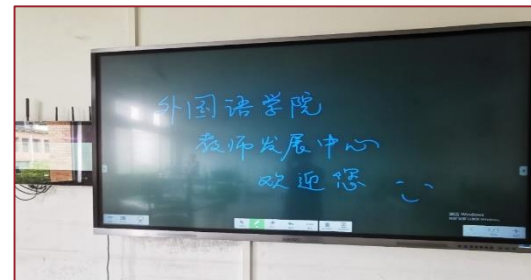 外国语学院
教师发展中心
欢迎您
激活 Windows